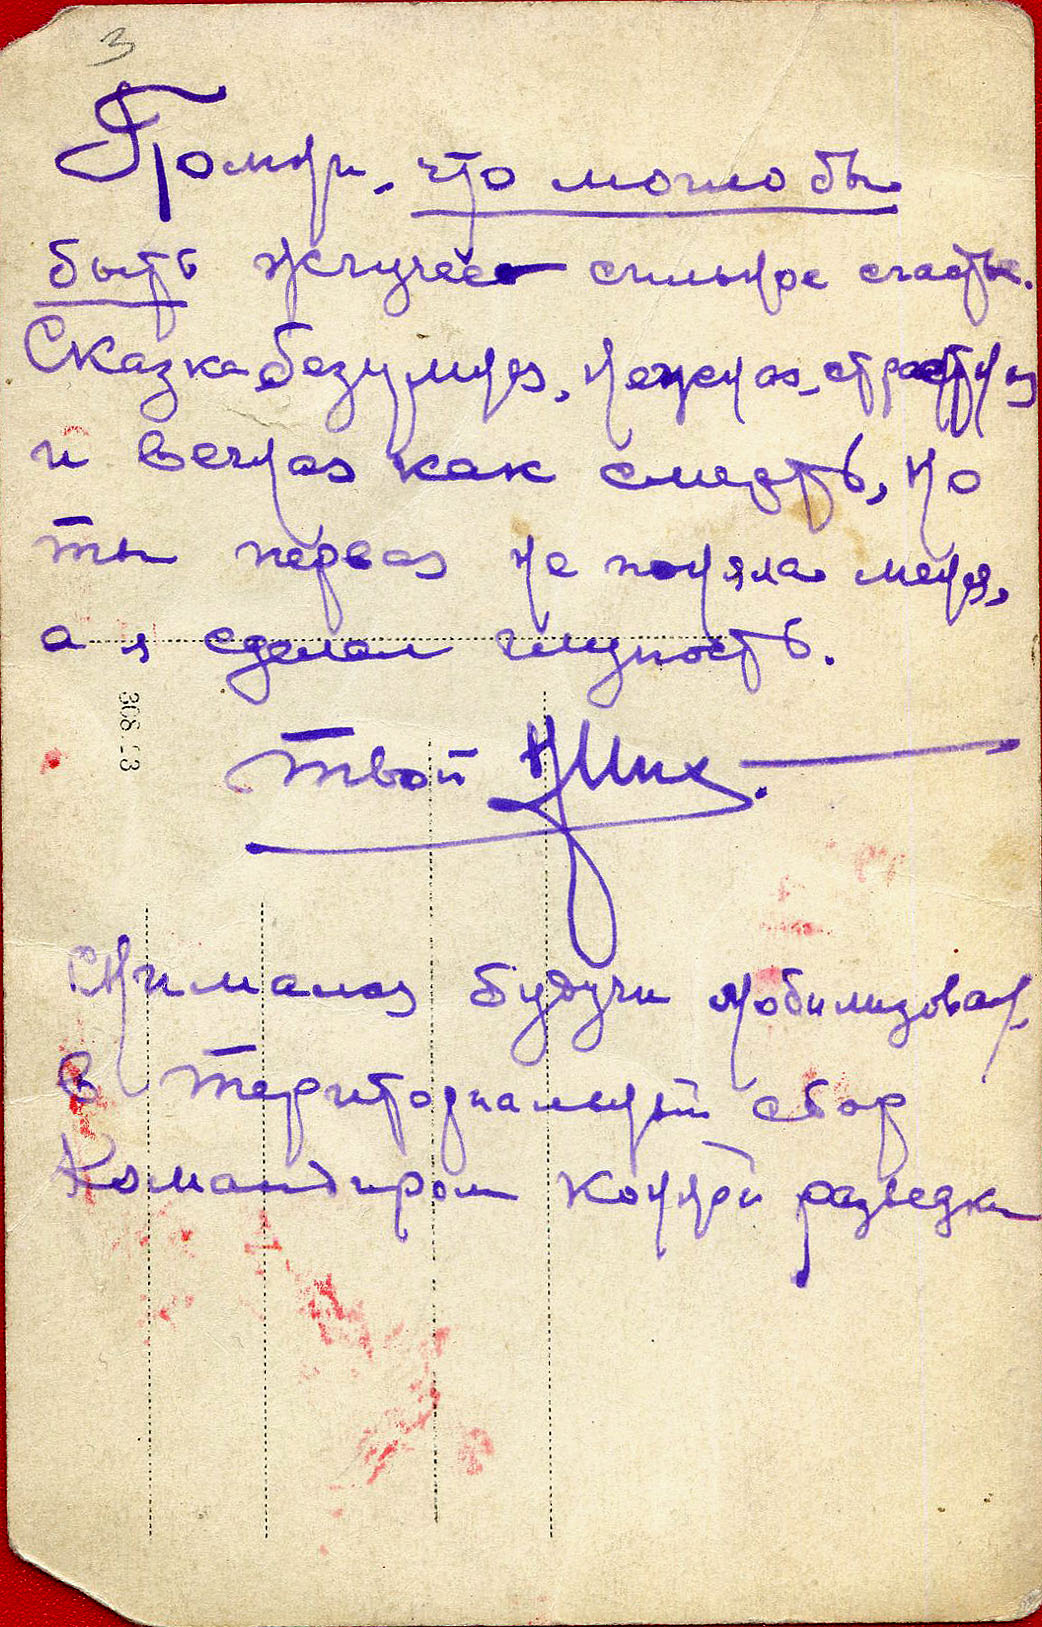 3
Помни, что могло бы
быть жгучее сильное счастье.
Сказка безумная, нежная, страстная
и вечная как смерть, но
ты первая не поняла меня,
а я сделал глупость.
308.23
твой
Снимался будучи мобилизован
в териториальный сбор
Командиром конной разведки